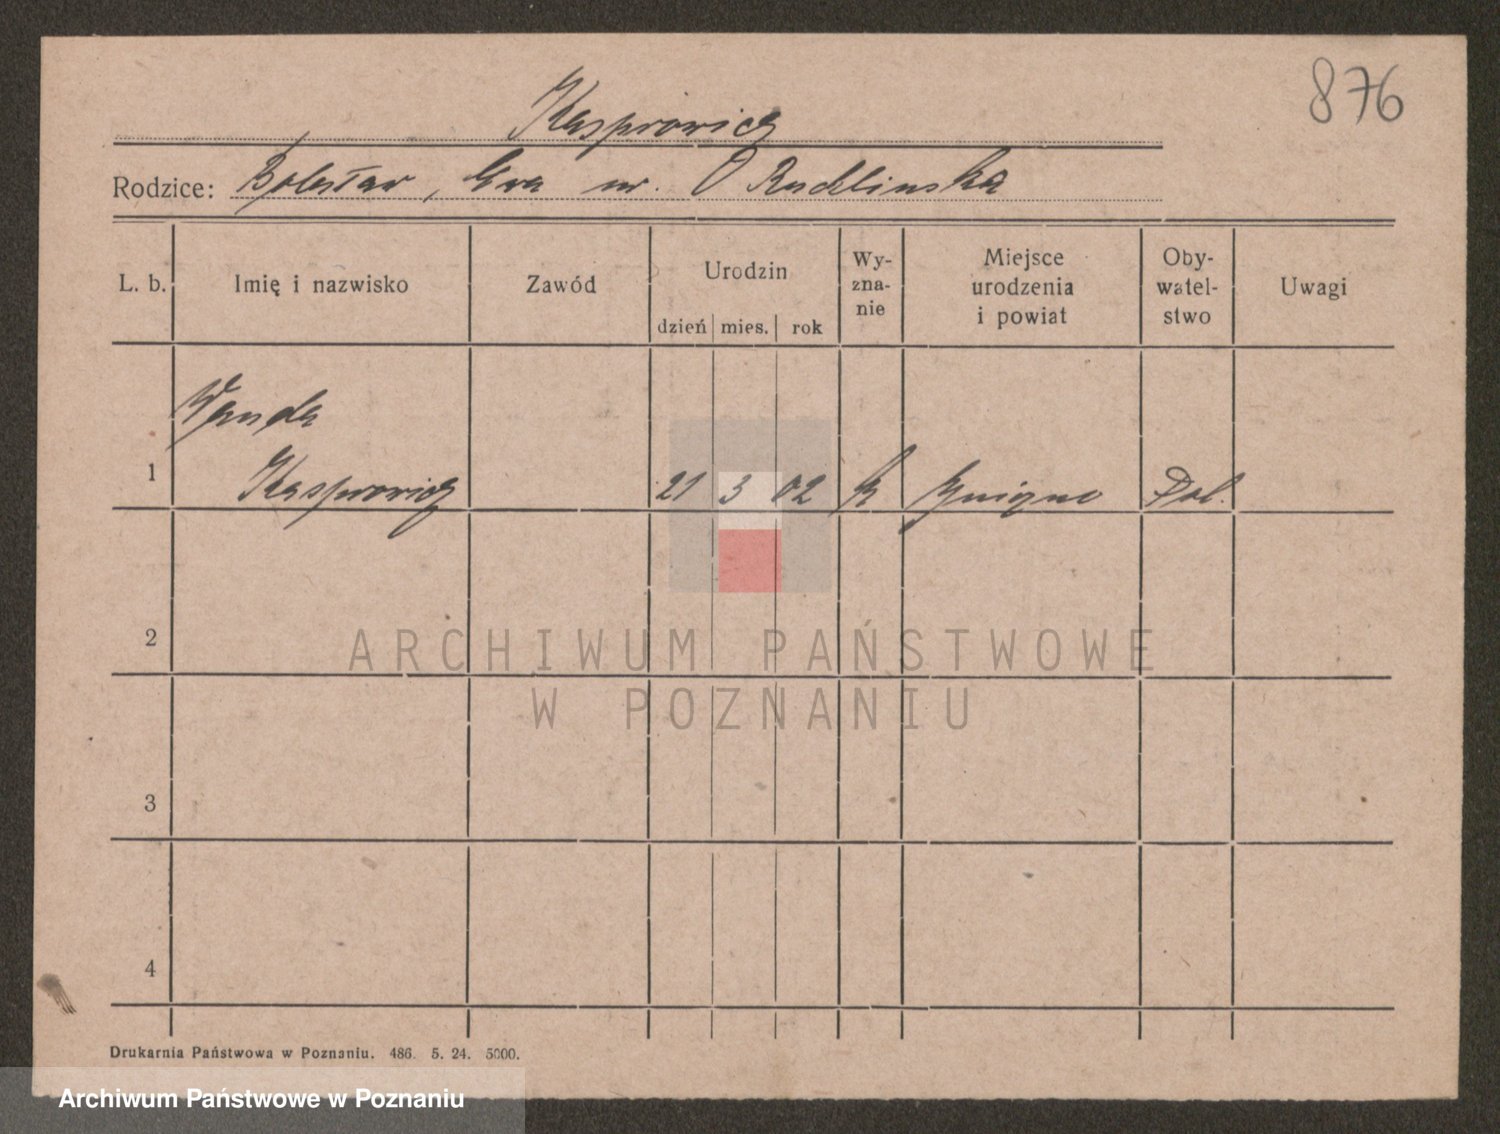 876
Kasprowicz
Rodzice: Bolesław, Ewa ur. Rudlinska
L. b. Imię i nazwisko Zawód Urodzin dzień mies. rok Wy-zna-nie Miejsce urodzenia i powiat Oby-watel-stwo Uwagi
Wanda
1 Kasprowicz 21 3 02 k Pol.
2
ARCHIWUM PAŃSTWOWE
W POZNANIU
3
4
Drukarnia Państwowa w Poznaniu. 486. 5. 24. 5000.
Archiwum Państwowe w Poznaniu